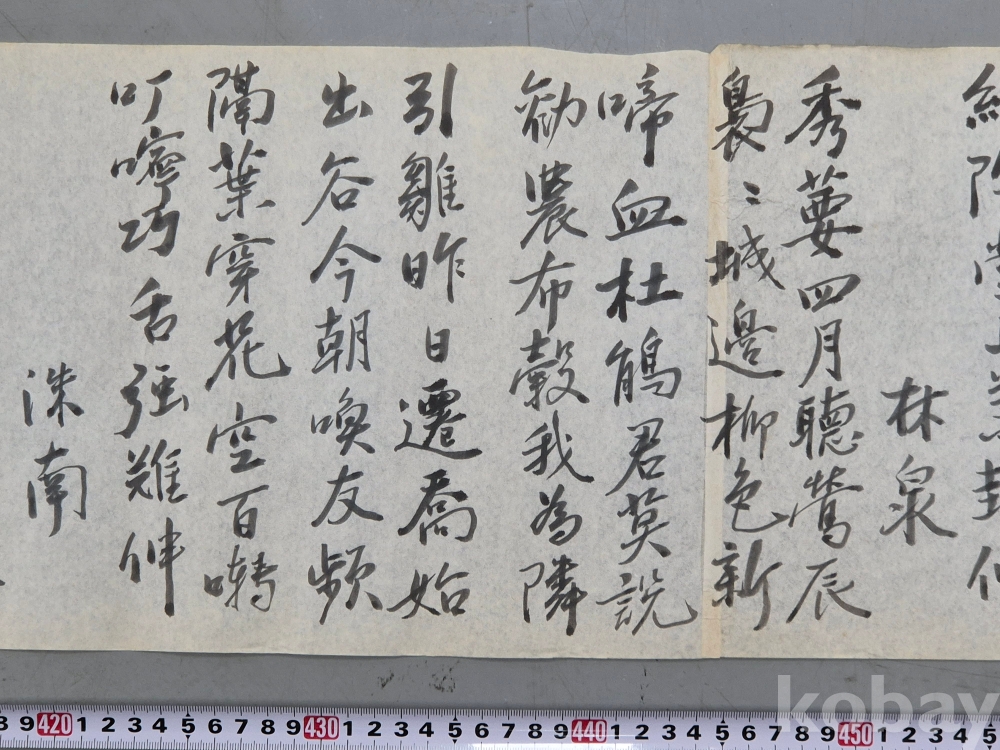 林泉
秀葽四月聽鶯辰
裊〻城邊柳色新
啼血杜鵑君莫説
勸農布穀我為隣
引雛昨日遷喬始
出谷今朝喚友頻
隔葉穿花空百囀
叮嚀巧舌强難伸
洙南
8 9 420 1 2 3 4 5 6 7 8 9 430 1 2 3 4 5 6 7 8 9 440 1 2 3 4 5 6 7 8 9 450 1 2 3 4 5
kobay